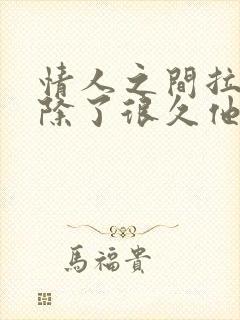 情人之間拉
除了很久他
馬福貴